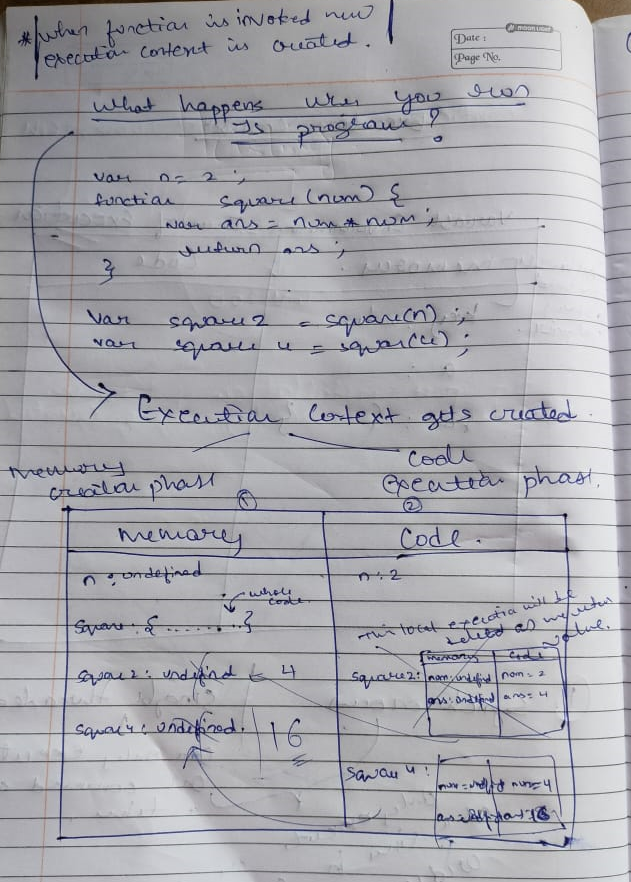 * when function is invoked new
execution context is created.
moon light
Date :
Page No.
What happens when you run
Js program?
var n = 2 ;
function square (num) {
var ans = num * num ;
return ans ;
}
var square2 = square(n) ;
var square4 = squar(4) ;
Execution Context gets created.
memory
creation phase
①
code
execution phase.
②
memory
Code.
n : undefined
n : 2
whole
code.
square : { ......... }
This local execution will be
deleted as we return
value.
square2 : undefined ← 4
square2:
memory
code
num : undefined
num = 2
ans : undefined
ans = 4
square4 : undefined. 16
square 4 :
num = 4
16